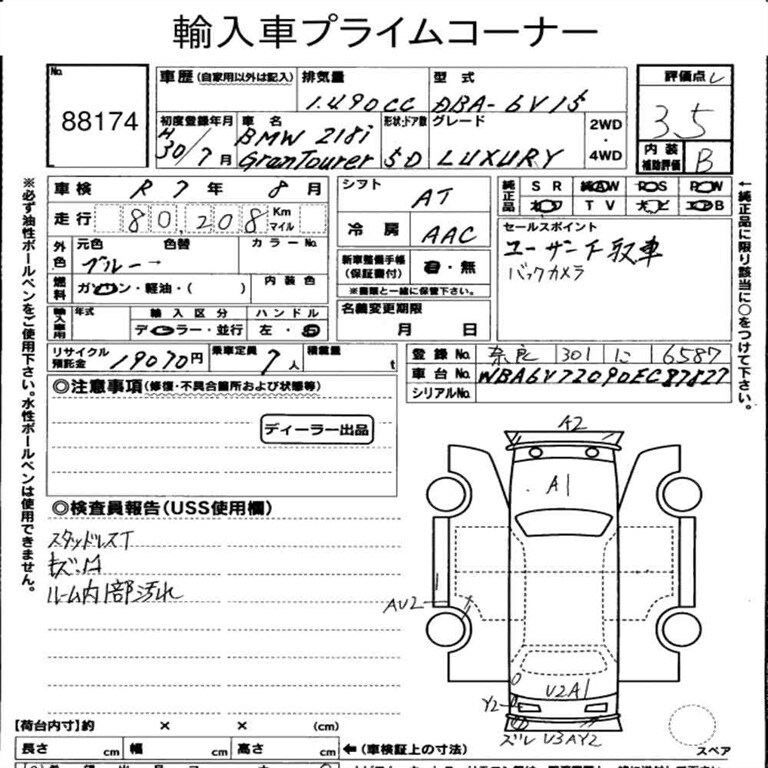 輸入車プライムコーナー
No. 88174
車歴(自家用以外は記入) 排気量 1.490CC 型式 DBA-6V15 評価点 3.5
初度登録年月 H30/7月 車名 BMW 218i GranTourer 形状・ドア数 5D グレード LUXURY 2WD・4WD 内装補助評価 B
車検 R7年8月 シフト AT 純正品 SR AW PS PW
走行 80,208 Km マイル 冷房 AAC TV
外色 元色 色替 カラーNo. ブルー→ 新車整備手帳(保証書付) 有・無 セールスポイント
燃料 ガソリン・軽油・( ) 内装色 ※書類と一緒に保管下さい。 ユーザー下取車
バックカメラ
輸入車用 年式 輸入区分 ディーラー・並行 ハンドル 左・右 名義変更期限 月 日
リサイクル預託金 19070円 乗車定員 7人 積載量 t 登録No. 奈良 301 に 6587
車台No. WBA6V72090EC87827
シリアルNo.
◎注意事項(修復・不具合箇所および状態等)
ディーラー出品
◎検査員報告(USS使用欄)
スタッドレスT
キズ、凹
ルーム内1部汚れ
A2
A1
AU2
U2A1
Y2
ズレ U3AY2
スペア
【荷台内寸】約 × × (cm)
長さ cm 幅 cm 高さ cm ←(車検証上の寸法)
※必ず油性ボールペンをご使用下さい。水性ボールペンは使用できません。
←純正品に限り該当に○をつけて下さい。